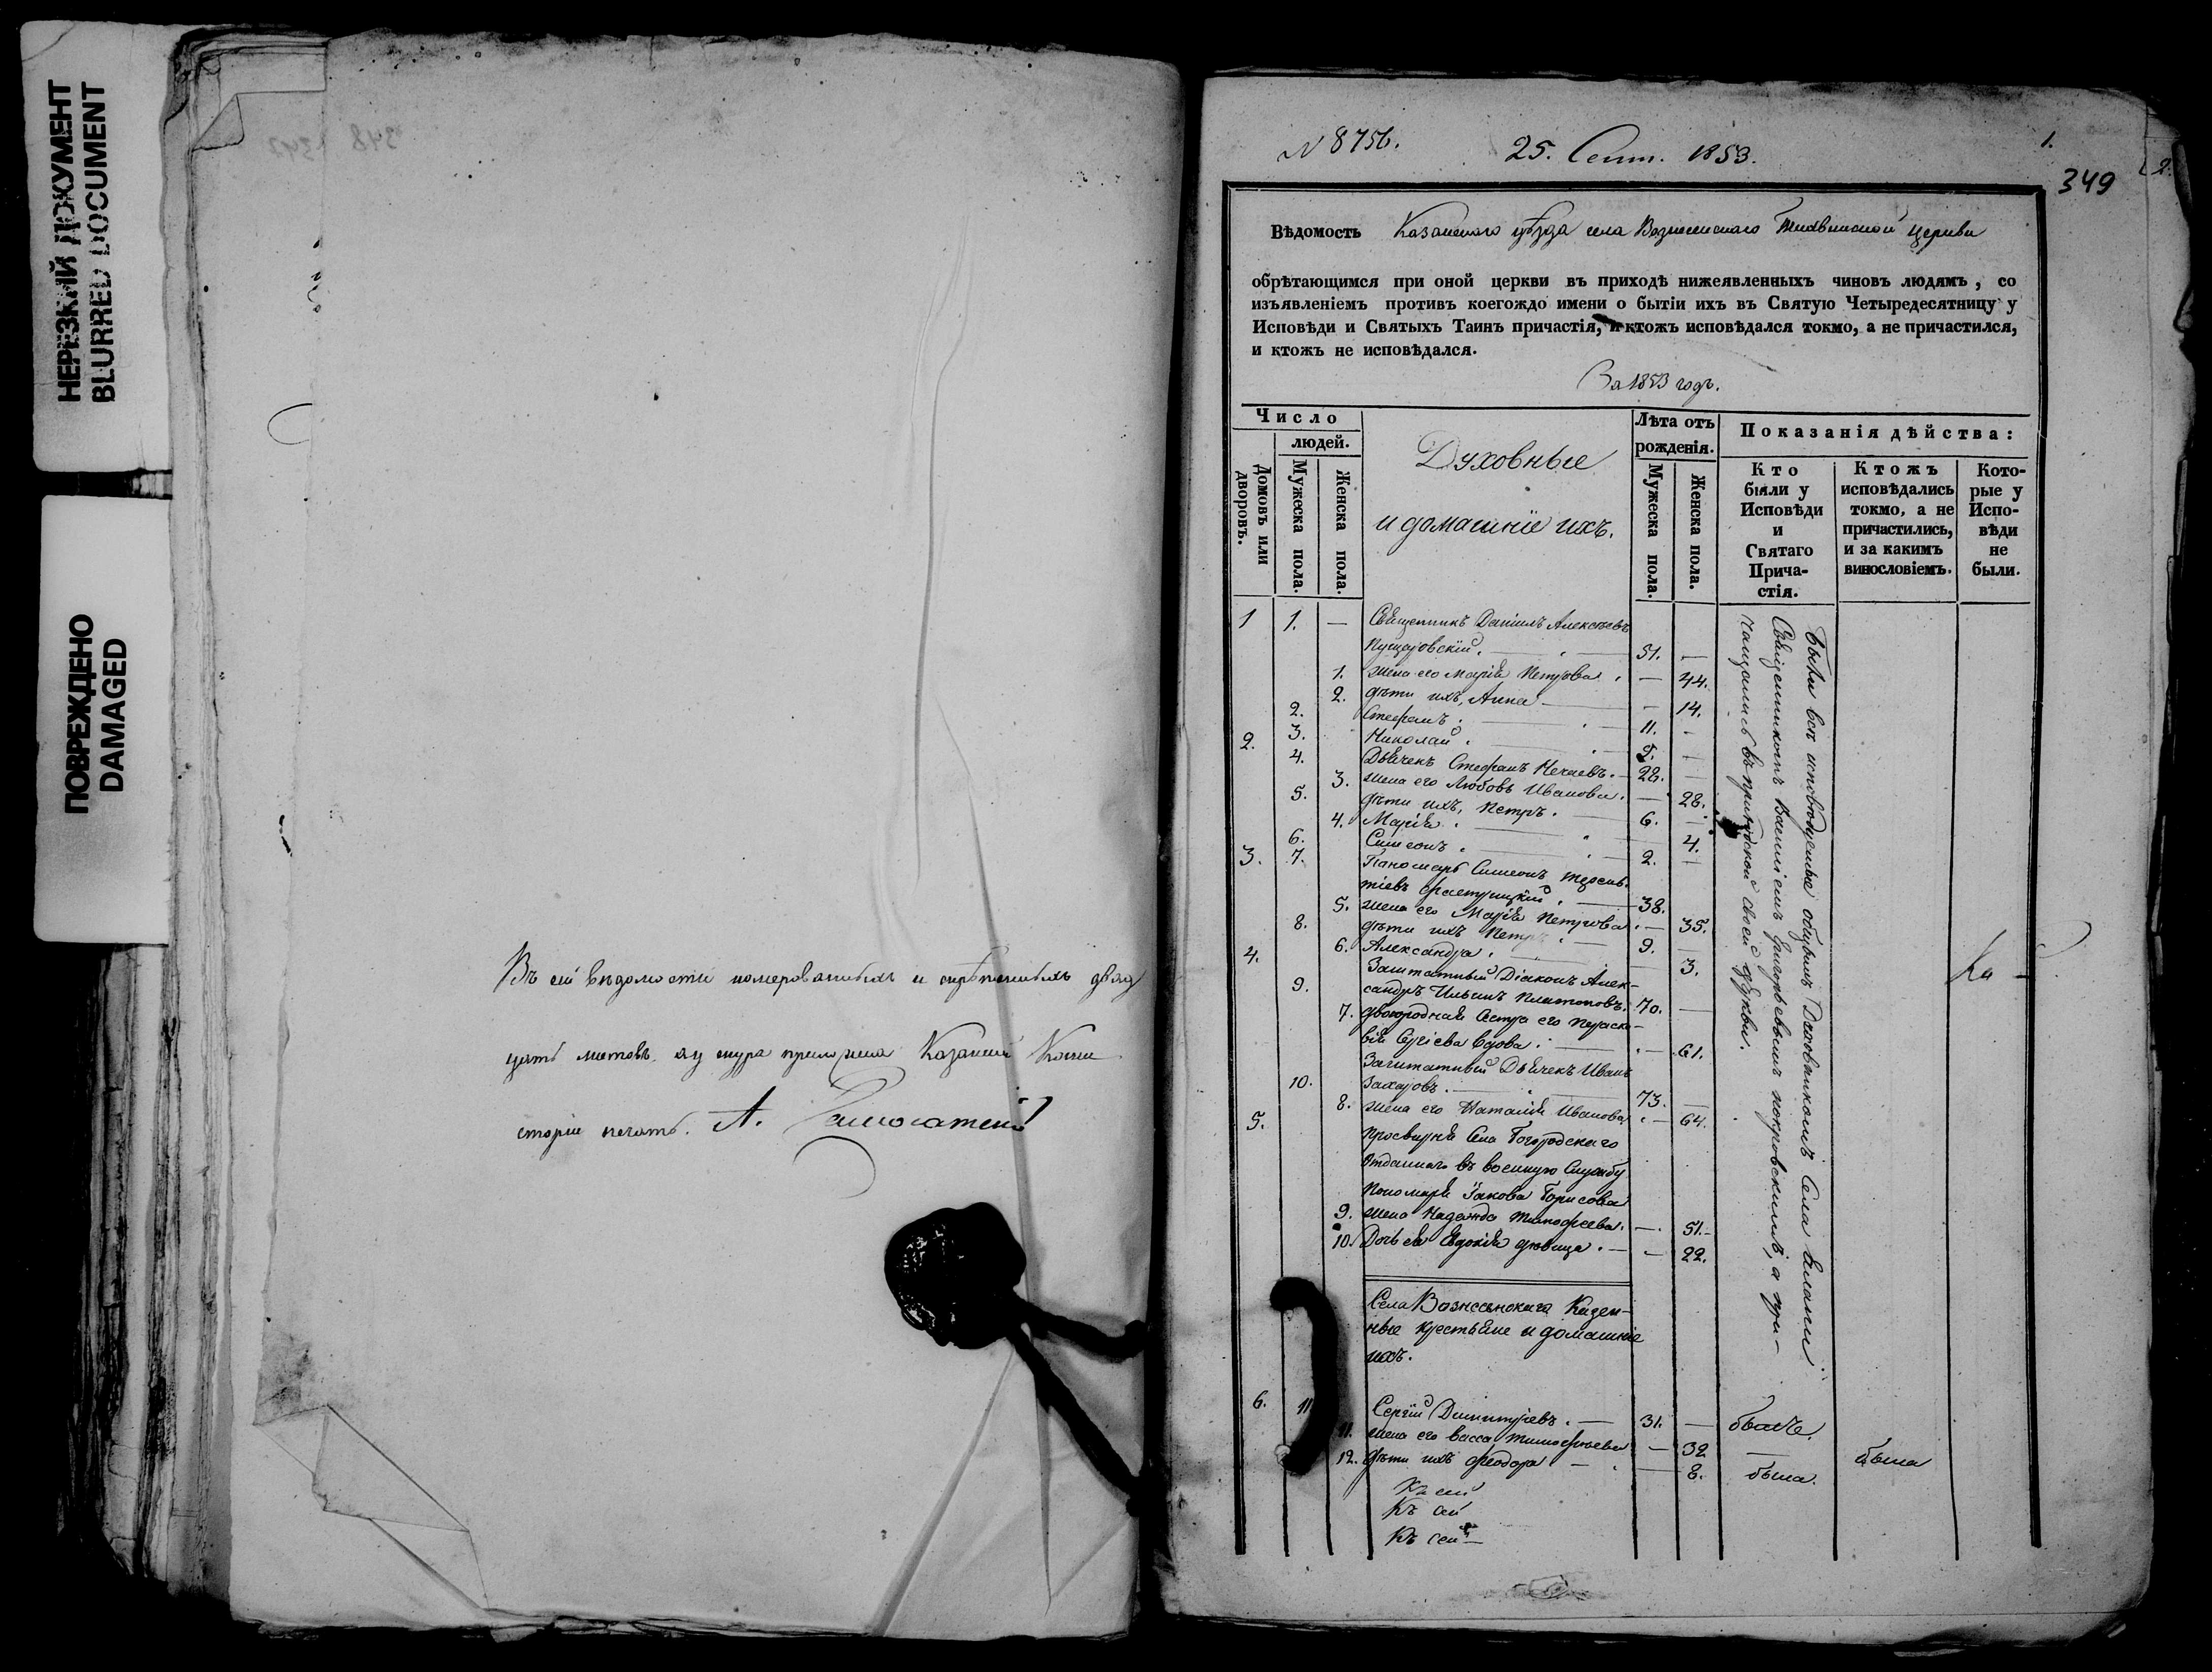 НЕРЕЗКИЙ ДОКУМЕНТ
BLURRED DOCUMENT
ПОВРЕЖДЕНО
DAMAGED
348
Въ сей вѣдомости номерованныхъ и скрѣпленныхъ двад
цать листовъ, къ шнура приложена Казанской Конси
сторіи печать. А.
N 8756. 25. Сент. 1853.
1.
349
Вѣдомость Казанскаго уѣзда села Вознесенскаго Тихвинской церкви
обрѣтающимся при оной церкви въ приходѣ нижеявленныхъ чиновъ людямъ, со
изъявленіемъ противъ коегождо имени о бытіи ихъ въ Святую Четыредесятницу у
Исповѣди и Святыхъ Таинъ причастія, и ктожъ исповѣдался токмо, а не причастился,
и ктожъ не исповѣдался.
За 1853 годъ.
Число
людей.
Домовъ или дворовъ.
Мужеска пола.
Женска пола.
Духовные
и домашніе ихъ.
Лѣта отъ
рожденія.
Мужеска пола.
Женска пола.
Показанія дѣйства:
Кто
были у
Исповѣди
и
Святаго
Прича-
стія.
Ктожъ
исповѣдались
токмо, а не
причастились,
и за какимъ
винословіемъ.
Кото-
рые у
Испо-
вѣди
не
были.
1 1. — Священникъ Даніилъ Алексѣевъ
51. —
1. жена его Марія Петрова. — 44.
2. дѣти ихъ, Анна — 14.
2. Стефанъ. 11. -
3. Николай.
2. 4. Дьячекъ Стефанъ Нечаевъ. 28. —
3. жена его Любовь Иванова. — 28.
5. дѣти ихъ, Петръ. 6. —
4. Марія. 4.
6. Симеонъ. 2. —
3. 7. Пономарь Симеонъ
38.
5. жена его Марія Петрова. — 35.
8. дѣти ихъ Петръ. 9. —
6. Александра. 3.
4. Заштатный Діаконъ Алек-
9. сандръ Ильинъ Платоновъ. 70. —
7. двоюродная сестра его Параске-
вія Сергіева вдова. — 61.
Заштатный Дьячекъ Иванъ
10. Захаровъ. 73. —
8. жена его Наталія Иванова — 64.
5. Просвирня Села Богородскаго
отданнаго въ военную Службу
Пономаря Іакова Борисова
9. жена Надежда Тимофеева. — 51.
10. Дочь ея Евдокія дѣвица. — 22.
Были всѣ исповѣдуемые общимъ Духовникомъ Села
Священникомъ Василіемъ Григорьевымъ Покровскимъ, а при-
чащались въ приходской своей церкви.
Ка -
Села Вознесенскаго Казен-
ные крестьяне и домашніе
ихъ.
6. 11. Сергій Димитріевъ. 31. — былъ.
11. жена его Васса Тимофѣева — 32 — была
12. дѣти ихъ Феодора — 8. была.
Къ сей
Къ сей
Къ сей